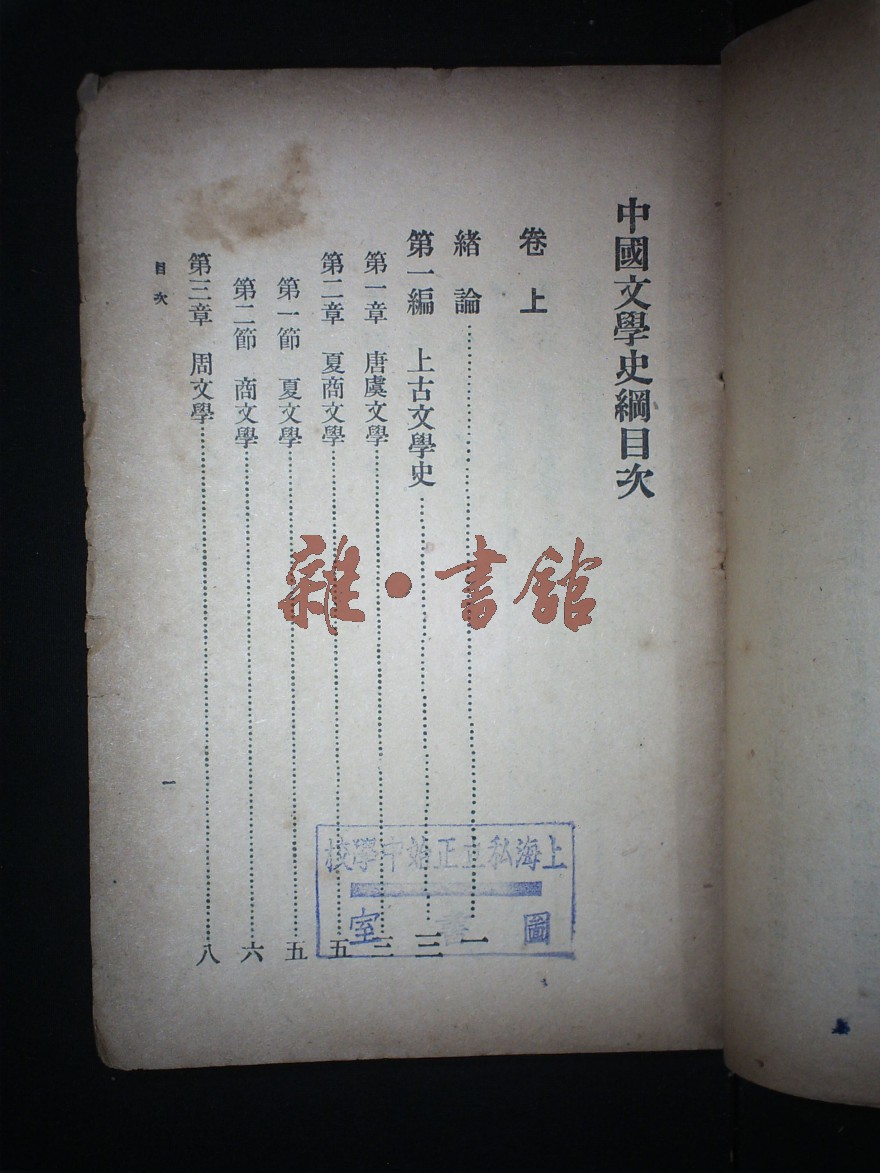 中國文學史綱目次
卷上
緒論……一
第一編　上古文學史……三
第一章　唐虞文學……三
第二章　夏商文學……五
第一節　夏文學……五
第二節　商文學……六
第三章　周文學……八
目次
一
雜·書館
上海私立正始中學校
圖書室